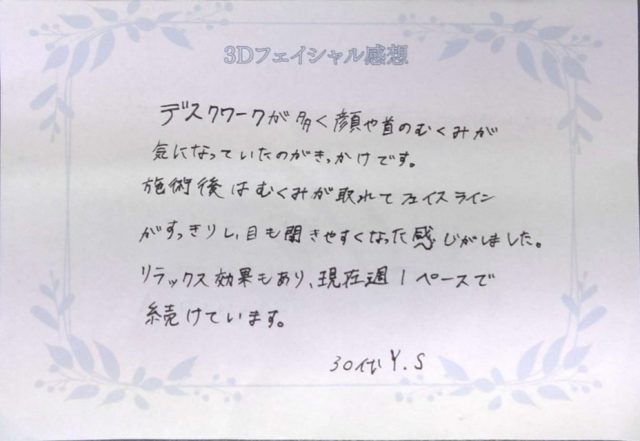 3Dフェイシャル感想
デスクワークが多く顔や首のむくみが
気になっていたのがきっかけです。
施術後はむくみが取れてフェイスライン
がすっきりし、目も開きやすくなった感じがしました。
リラックス効果もあり、現在週1ペースで
続けています。
30代 Y.S